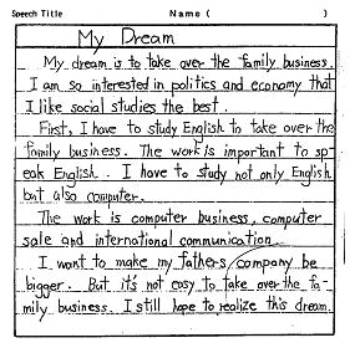 Speech Title Name ( )
My Dream
My dream is to take over the family business.
I am so interested in politics and economy that
I like social studies the best.
First, I have to study English to take over the
family business. The work is important to sp-
eak English. I have to study not only English
but also computer.
The work is computer business, computer
sale and international communication.
I want to make my fathers company be
bigger. But it's not easy to take over the fa-
mily business. I still hope to realize this dream.